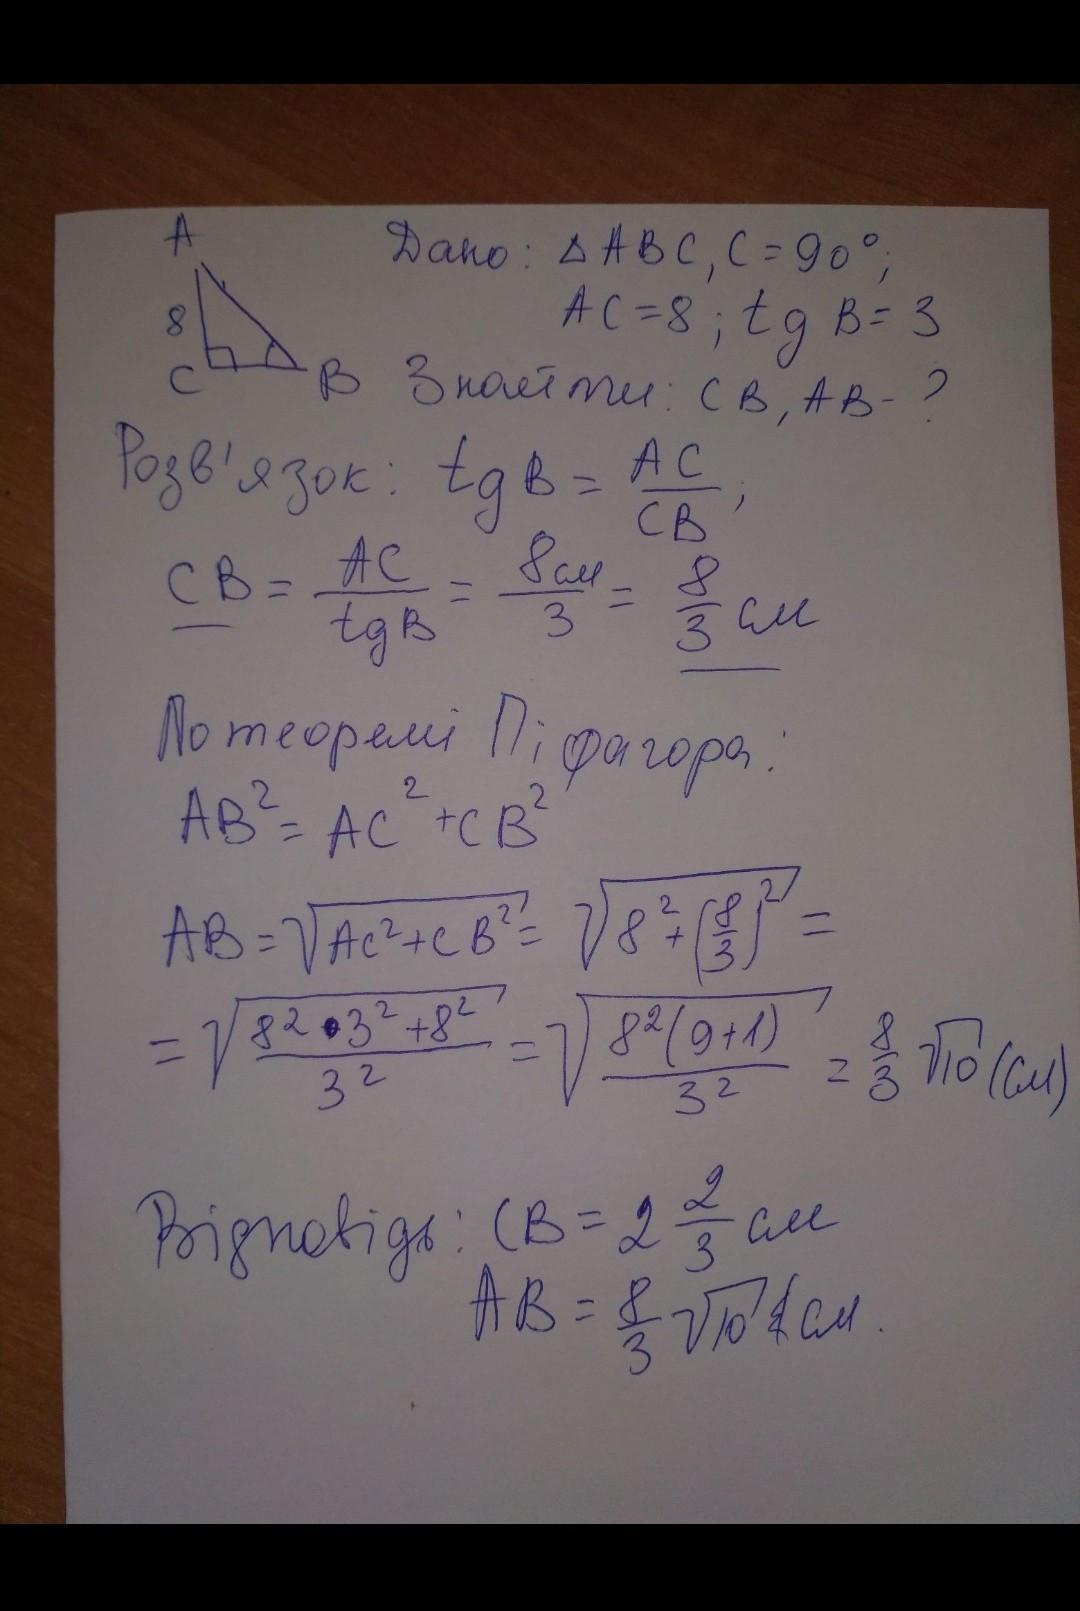 A
8
C
B
Дано: △ABC, C=90°;
AC=8; tg B=3
Знайти: CB, AB-?
Розв'язок: tg B = AC/CB;
CB = AC/tg B = 8см/3 = 8/3 см
По теоремі Піфагора:
AB² = AC² + CB²
AB = √(AC²+CB²) = √(8²+(8/3)²) =
= √((8²•3²+8²)/3²) = √(8²(9+1)/3²) = 8/3 √10 (см)
Відповідь: CB = 2 2/3 см
AB = 8/3 √10 см.